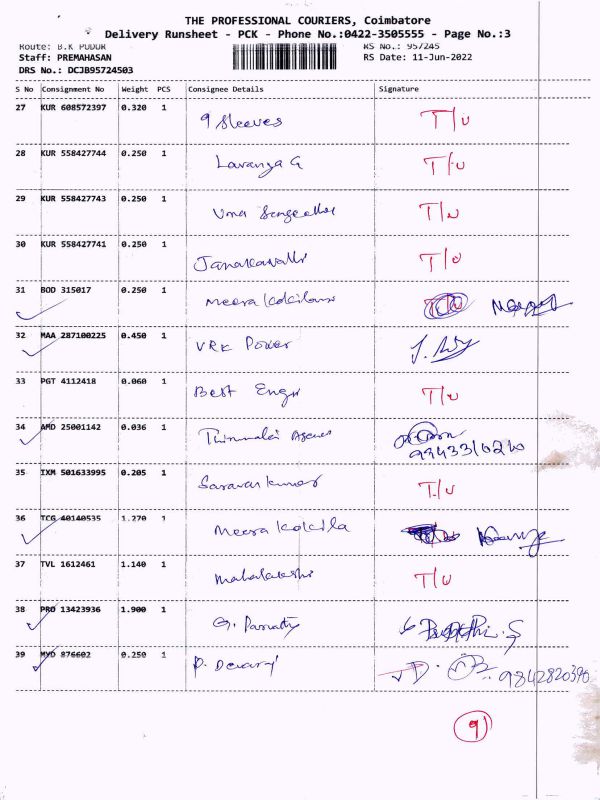 THE PROFESSIONAL COURIERS, Coimbatore
Delivery Runsheet - PCK - Phone No.:0422-3505555 - Page No.:3
Route: B.K PUDUR RS No.: 957245
Staff: PREMAHASAN RS Date: 11-Jun-2022
DRS No.: DCJB95724503
S No Consignment No Weight PCS Consignee Details Signature
27 KUR 608572397 0.320 1 9 Sleeves T/U
28 KUR 558427744 0.250 1 Lavanya G T/U
29 KUR 558427743 0.250 1 Uma T/U
30 KUR 558427741 0.250 1 Janakavalli T/U
31 BOD 315017 0.250 1 Meera
32 MAA 287100225 0.450 1 VRK Power
33 PGT 4112418 0.060 1 Best Engr T/U
34 AMD 25001142 0.036 1
35 IXM 501633995 0.205 1 Saravankumar T/U
36 TCG 40140535 1.270 1 Meera Kokila
37 TVL 1612461 1.140 1 Mahalakshmi T/U
38 PRO 13423936 1.900 1 G.
39 MYD 876602 0.250 1 P. Devaraj 9842820390
9